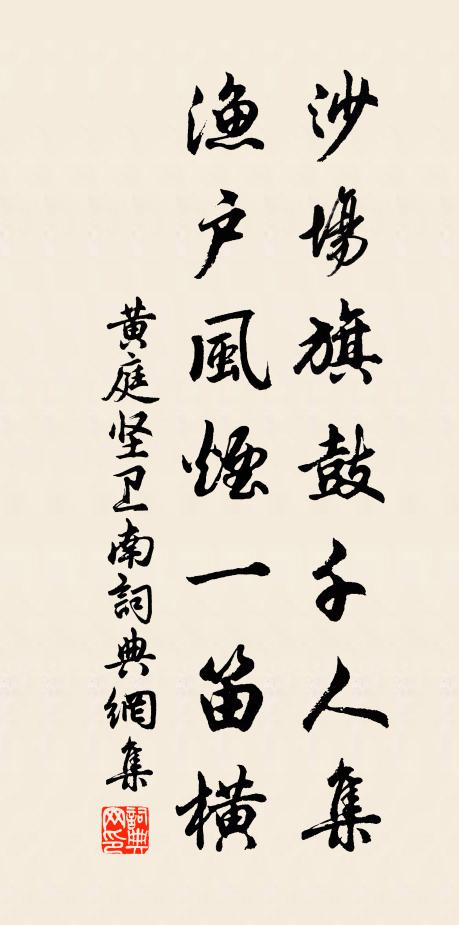 沙場旗鼓千人集
漁戶風煙一笛橫
黃庭坚卫南詞典網集
詞典网印